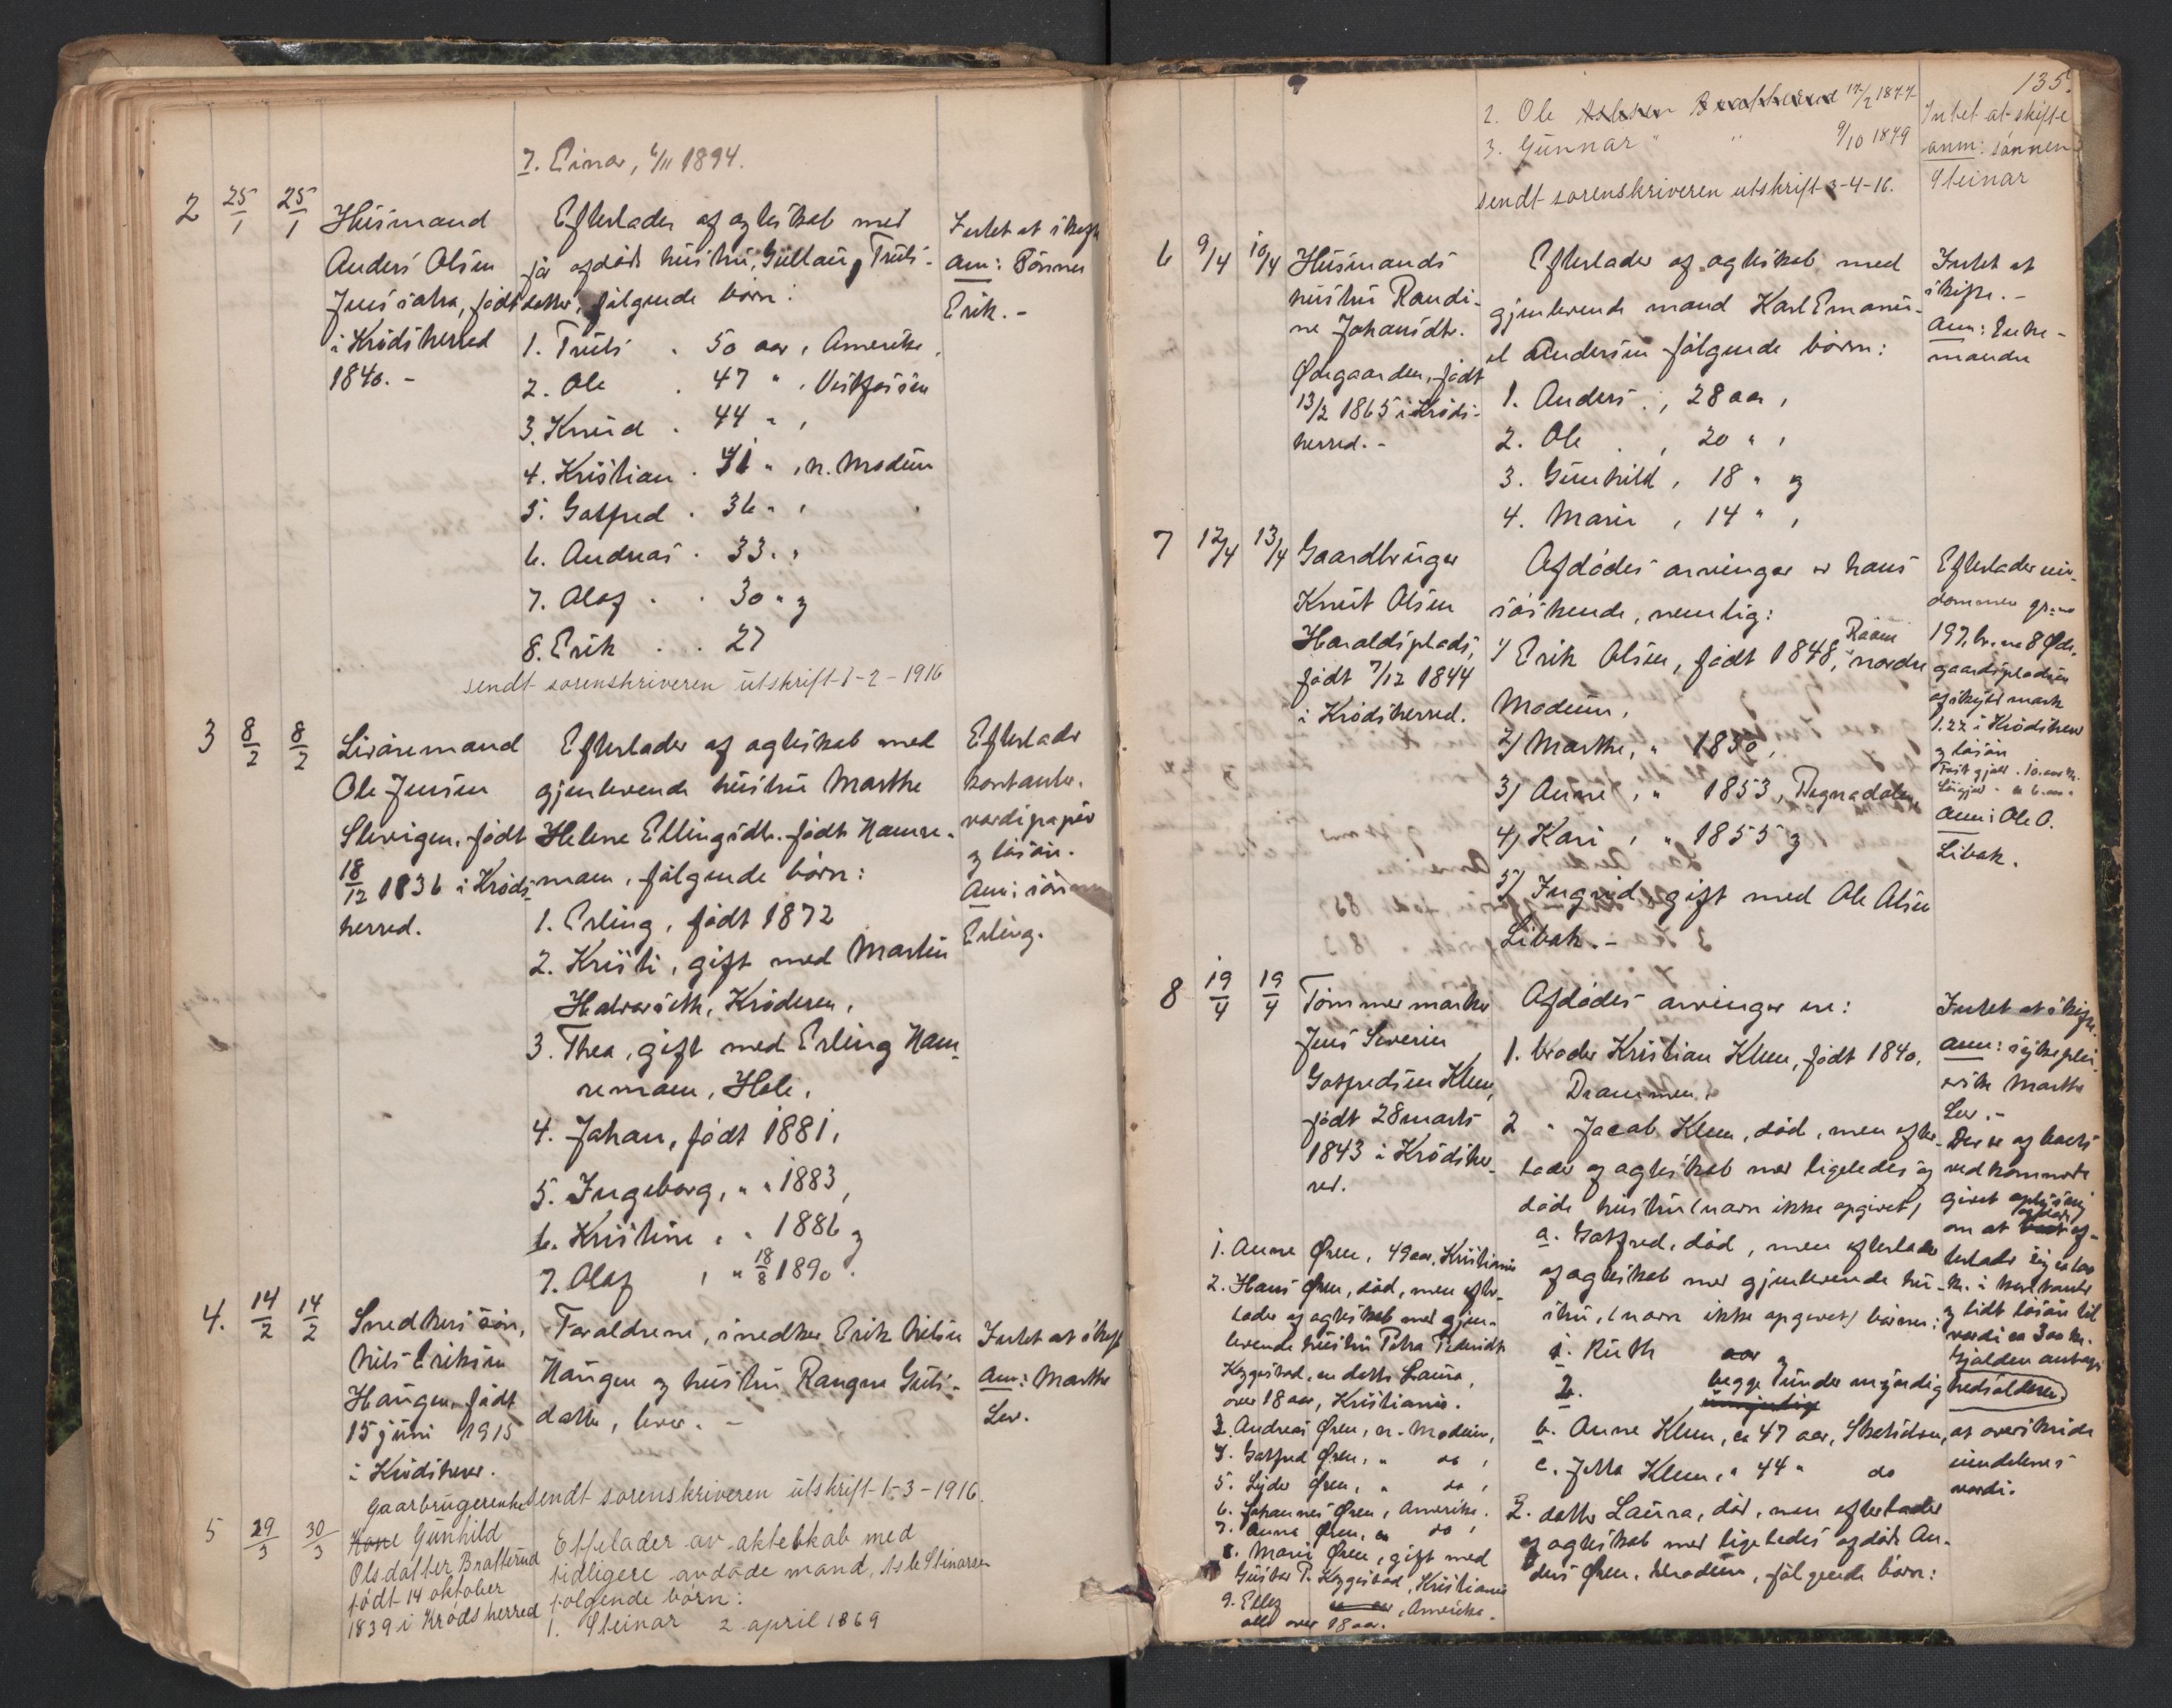 7. Einar, 6/11 1894.
2 25/1 25/1
Husmand
Anders Olsen
Jenssætra, født
i Krødsherred
1840. -
Efterlader af ægteskab med
før afdøde hustru, Gullaug Truls-
datter, følgende børn:
1. Truls . 50 aar, Amerika,
2. Ole . 47 " , Vestfossen
3. Knud . 44 " ,
4. Kristian . 41 " , n. Modum
5. Gotfred . 36 " ,
6. Andreas . 33 " ,
7. Olaf . . 30 " og
8. Erik . . 27
sendt sorenskriveren utskrift 1-2-1916
Intet at skifte
Anm: Sønnen
Erik. -
3 8/2 8/2
Livøremand
Ole Jensen
Slevigen, født
18/12 1836 i Kröds-
herred.
Efterlader af ægteskab med
gjenlevende hustru Marthe
Helene Ellingsdtr. født Namre-
moen, følgende børn:
1. Erling, født 1872
2. Kristi, gift med Martin
Halvorseth, Krøderen,
3. Thea, gift med Erling Nam-
remoen, Hole,
4. Johan, født 1881,
5. Ingeborg, " " 1883,
6. Kristine " " 1886 og
7. Olaf , " 18/8 1890.
Efterlader
kontanter,
værdipapir
og løsøre.
Anm: sønnen
Erling.
4. 14/2 14/2
Snedkers søn,
Nils Eriksen
Haugen, født
15 juni 1915
i Krødsherr.
Forældrene, snedker Erik Nilsen
Haugen og hustru Rangne Guls-
datter, lever. -
sendt sorenskriveren utskrift 1-3-1916.
Intet at skifte
Anm: Marthe
Lev.
5 29/3 30/3
Gaarbrugerenke
Kone Gunhild
Olsdatter Bratterud
født 14 oktober
1839 i Krødsherred
Effelader av aktebkab med
tidligere avdøde mand, Asle Stinarsen
følgende børn:
1. Steinar 2 april 1869
135.
2. Ole Aslesen Bratterud 17/2 1877
3. Gunnar " " 9/10 1879
sendt sorenskriveren utskrift 3-4-16.
Intet at skifte
anm: sønnen
Steinar
6 9/4 10/4
Husmands
hustru Randi-
ne Johansdtr.
Ødegaarden, født
13/2 1865 i Krøds-
herred. -
Efterlader af ægteskab med
gjenlevende mand Karl Emanu-
el Andersen følgende børn:
1. Anders . , 28 aar ,
2. Ole . , 20 " ,
3. Gunhild , 18 " og
4. Marie , 14 " ,
Intet at
skifte. -
Anm: Enke-
manden
7 12/4 13/4
Gaardbruger
Knut Olsen
Haraldsplads,
født 7/12 1844
i Krødsherred.
Afdødes arvinger er hans
søskende, nemlig:
1) Erik Olsen, født 1848, Raaen nordre
Modum,
2) Marthe, " 1850,
3) Anne , " 1853, Begnadalen,
4) Kari , " 1855 og
5) Ingrid, gift med Ole Olsen
Libak. -
Efterlader eien-
dommen gr.no
197, br.no 8 Øde-
gaardspladsen
af skyld mark
1.22 i Krødsherr
og løsøre
Anm: Ole O.
Libak.
8 19/4 19/4
Tømmermerker
Jens Severin
Gotfredsen Kleen,
født 28 marts
1843 i Krødsher-
red.
Afdødes arvinger er:
1. broder Kristian Kleen, født 1840,
Drammen,
2 " Jacob Kleen, død, men efter-
lader af ægteskab med ligeledes og
døde hustru (navn ikke opgivet)
a. Gotfred, død, men efterlader
af ægteskab med gjenlevende hu-
stru, (navn ikke opgivet) børnene:
1. Ruth aar og
2. begge under myndig
b. Anne Kleen, ca 47 aar, Skotselven,
c. Jetta Kleen, " 44 " do
3. datter Laura, død, men efterlader
af ægteskab med ligeledes afdøde An-
ders Øren, Modum, følgende børn:
Intet at skifte.
Anm: sykeplei-
erske Marthe
Lev. -
Der er af hans
vedkommende
givet oplysning
om at afdøde ef-
terlader
og lidt løsøre til
værdi ca 300 kr.
Gjælden antages
at overskride
eiendelenes
værdi.
1. Anne Øren, 49 aar, Kristiania
2. Hans Øren, død, men efter-
lader af ægteskab med gjen-
levende hustru Petra Pedersdtr
Kyggestad, en datter Laura,
over 18 aar, Kristiania.
3. Andreas Øren, n. Modum,
4. Gotfred Øren, " do ,
5. Lyder Øren, " do ,
6. Johannes Øren, Amerika.
7. Anna Øren, do ,
8. Marie Øren, gift med
Gustav P. Kyggestad, Kristiania
9. Ellef , Amerika.
alle over 18 aar.